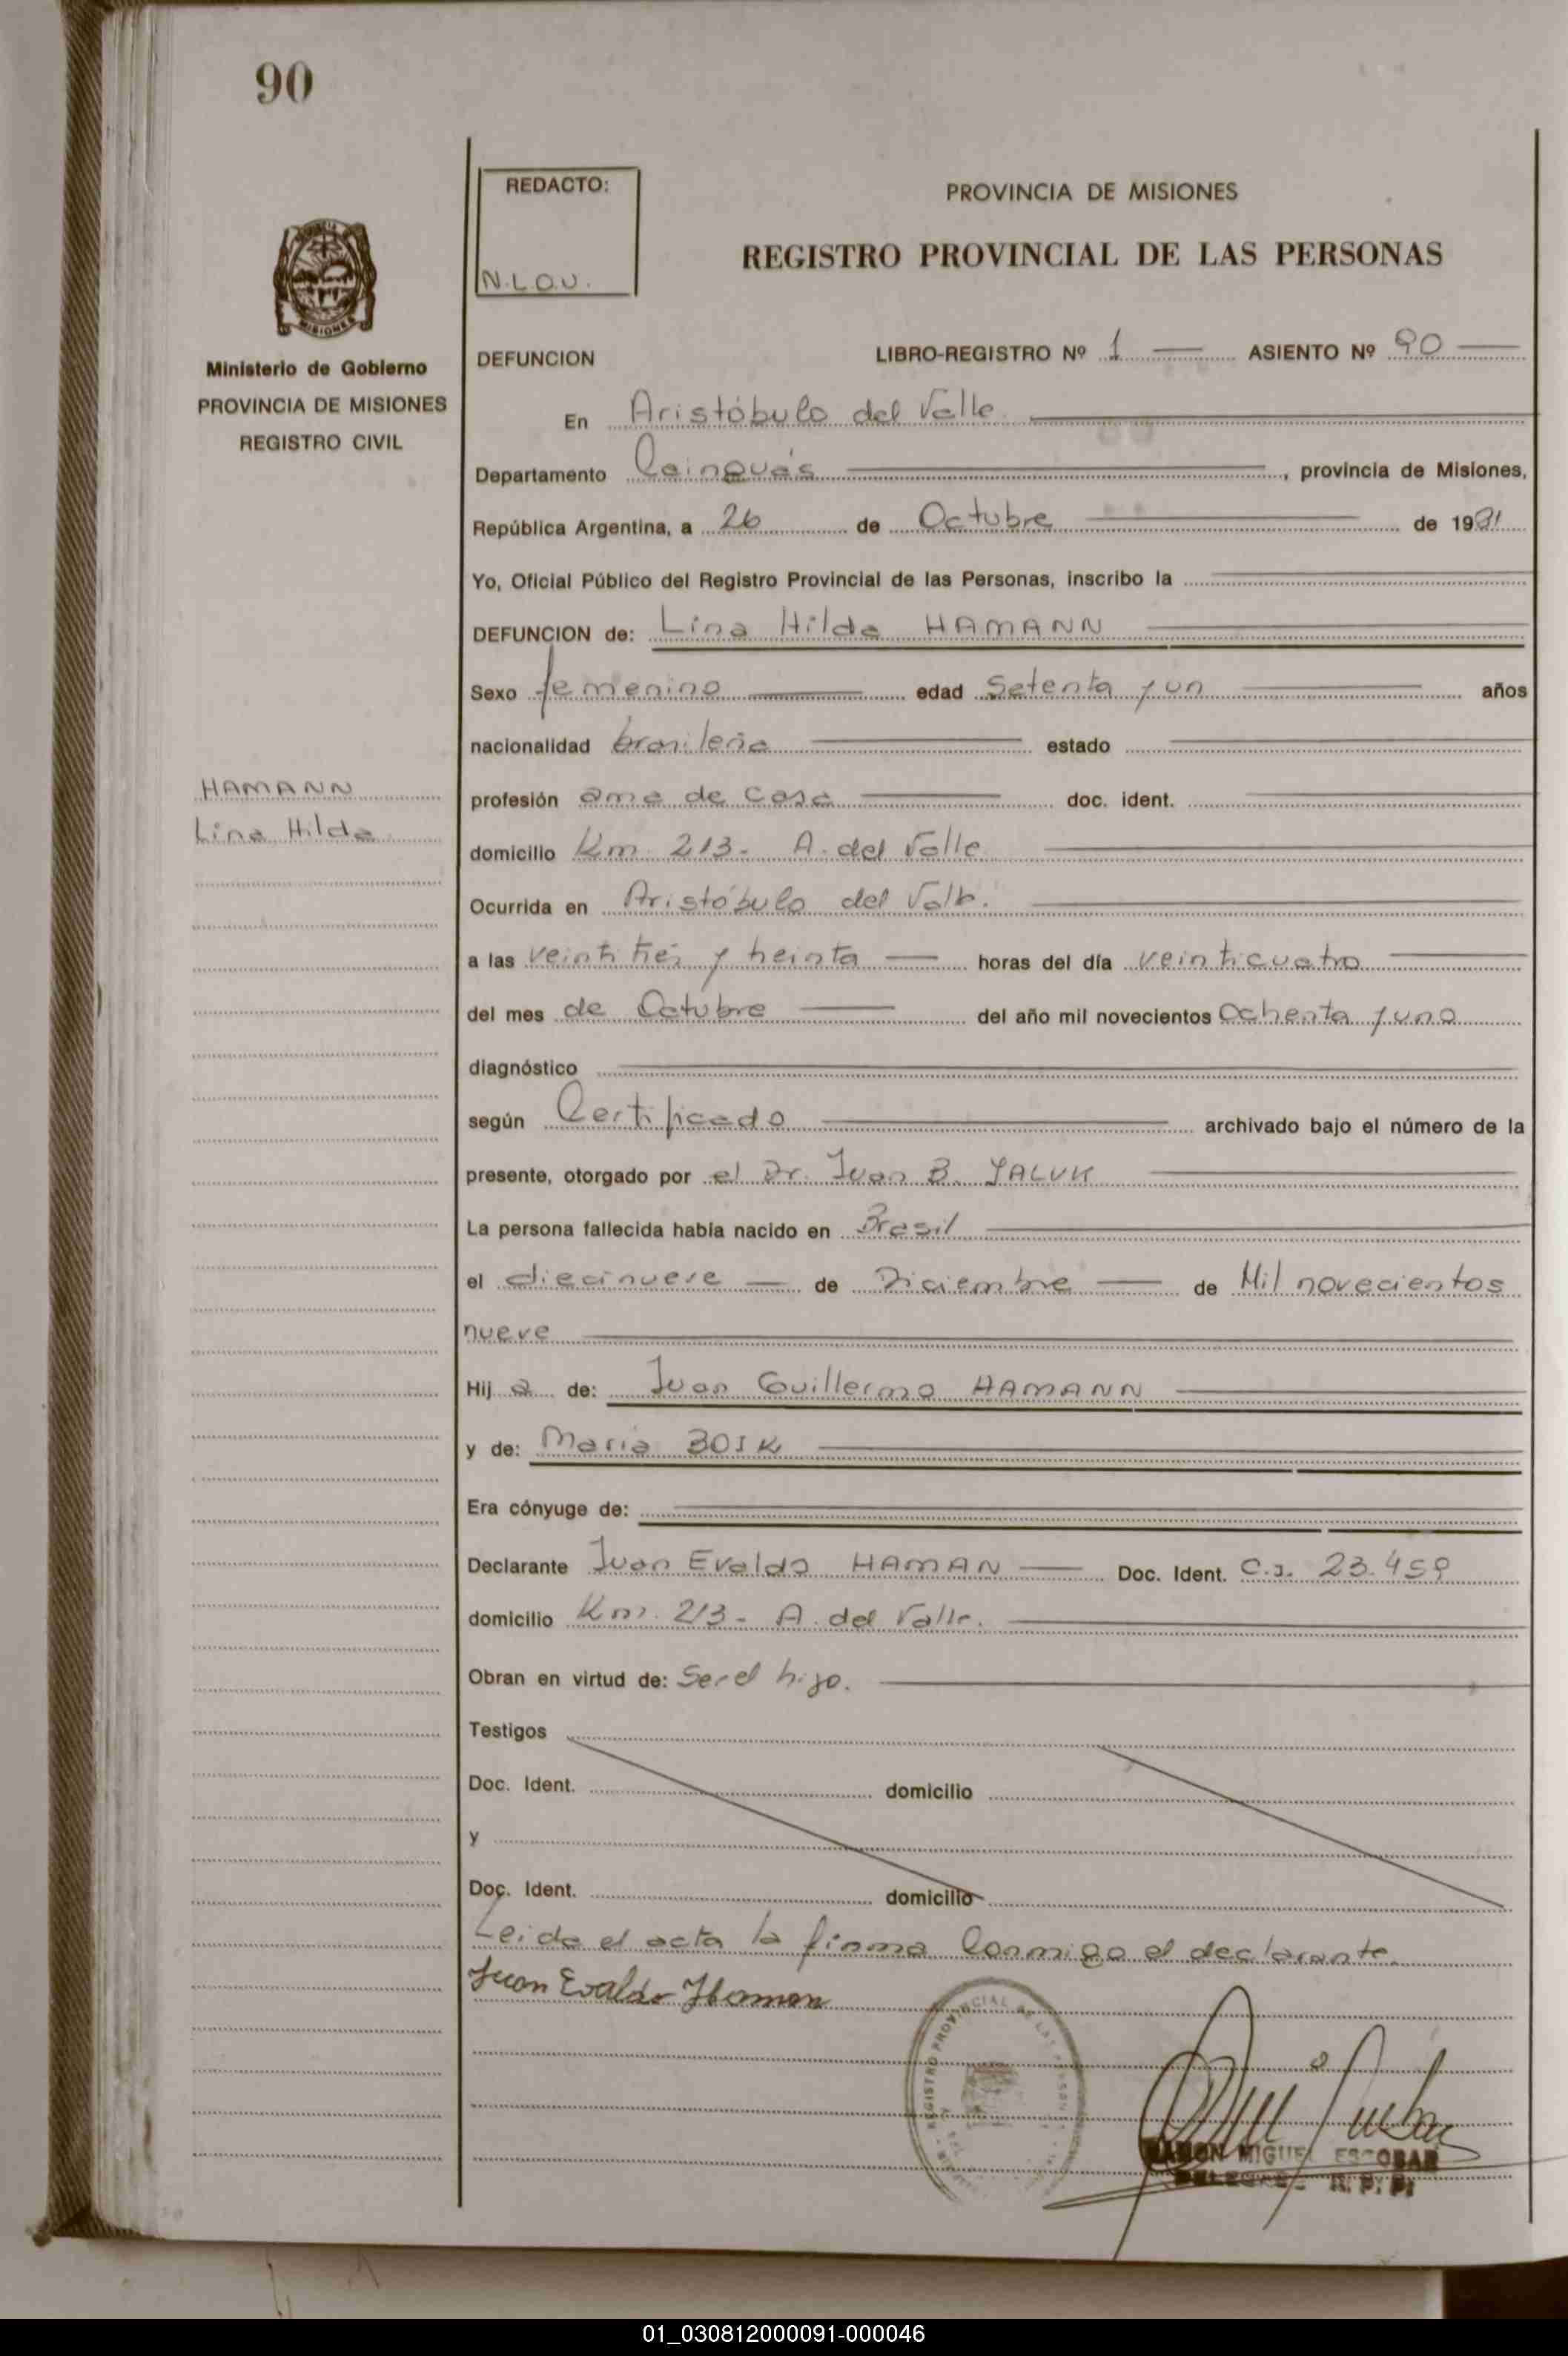 90
REDACTO:
N.L.O.U.
PROVINCIA DE MISIONES
REGISTRO PROVINCIAL DE LAS PERSONAS
MISIONES
Ministerio de Gobierno
PROVINCIA DE MISIONES
REGISTRO CIVIL
DEFUNCION LIBRO-REGISTRO Nº 1 ASIENTO Nº 90
En Aristóbulo del Valle
Departamento Cainguás, provincia de Misiones,
República Argentina, a 26 de Octubre de 1981
Yo, Oficial Público del Registro Provincial de las Personas, inscribo la
DEFUNCION de: Lina Hilda HAMANN
Sexo femenino edad Setenta y un años
nacionalidad brasileña estado
HAMANN
Lina Hilda
profesión ama de casa doc. ident.
domicilio Km. 213- A. del Valle
Ocurrida en Aristóbulo del Valle.
a las veintitrés y treinta horas del día veinticuatro
del mes de Octubre del año mil novecientos Ochenta y uno
diagnóstico
según Certificado archivado bajo el número de la
presente, otorgado por el Dr. Juan B. YALUK
La persona fallecida había nacido en Brasil
el diecinueve de Diciembre de Mil novecientos
nueve
Hij a de: Juan Guillermo HAMANN
y de: Maria
Era cónyuge de:
Declarante Juan Evaldo HAMAN Doc. Ident. C.I. 23.459
domicilio Km. 213- A. del Valle.
Obran en virtud de: Ser el hijo.
Testigos
Doc. Ident. domicilio
y
Doc. Ident. domicilio
Leida el acta la firma Conmigo el declarante.
Juan Evaldo Haman
REGISTRO PROVINCIAL DE LAS PERSONAS
RAMON MIGUEL ESCOBAR
DELEGADO R. P. P.
01_030812000091-000046